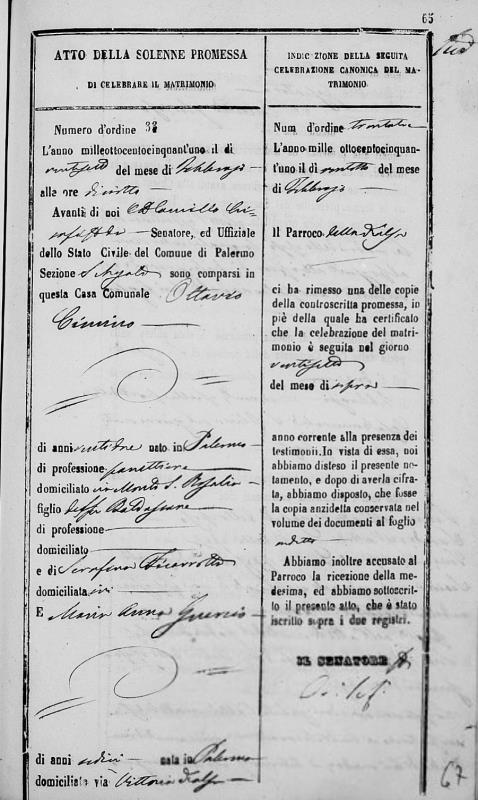 65
ATTO DELLA SOLENNE PROMESSA
DI CELEBRARE IL MATRIMONIO
Numero d'ordine 38
L'anno milleottocentocinquant'uno il dì
ventisette del mese di Febbrajo
alle ore diciotto
Avanti di noi D. Camillo
Senatore, ed Uffiziale
dello Stato Civile del Comune di Palermo
Sezione sono comparsi in
questa Casa Comunale Ottavio
Cimino
di anni ventidue nato in Palermo
di professione panettiere
domiciliato in Monti S. Rosalia
figlio del fu Baldassare
di professione
domiciliato
e di Serafina Ficarrotta
domiciliata ivi
E Maria Anna Guercio
di anni sedici nata in Palermo
domiciliata via Vittoria
INDICAZIONE DELLA SEGUITA
CELEBRAZIONE CANONICA DEL MA-
TRIMONIO
Num d'ordine trentotto
L'anno mille ottocentocinquan-
t'uno il dì ventotto del mese
di Febbrajo
Il Parroco della Kalsa
ci ha rimesso una delle copie
della controscritta promessa, in
piè della quale ha certificato
che la celebrazione del matri-
monio è seguita nel giorno
ventisette
del mese di sopra
anno corrente alla presenza dei
testimonii. In vista di essa, noi
abbiamo disteso il presente no-
tamento, e dopo di averla cifra-
ta, abbiamo disposto, che fosse
la copia anzidetta conservata nel
volume dei documenti al foglio
Abbiamo inoltre accusato al
Parroco la ricezione della me-
desima, ed abbiamo sottoscrit-
to il presente atto, che è stato
iscritto sopra i due registri.
IL SENATORE
67